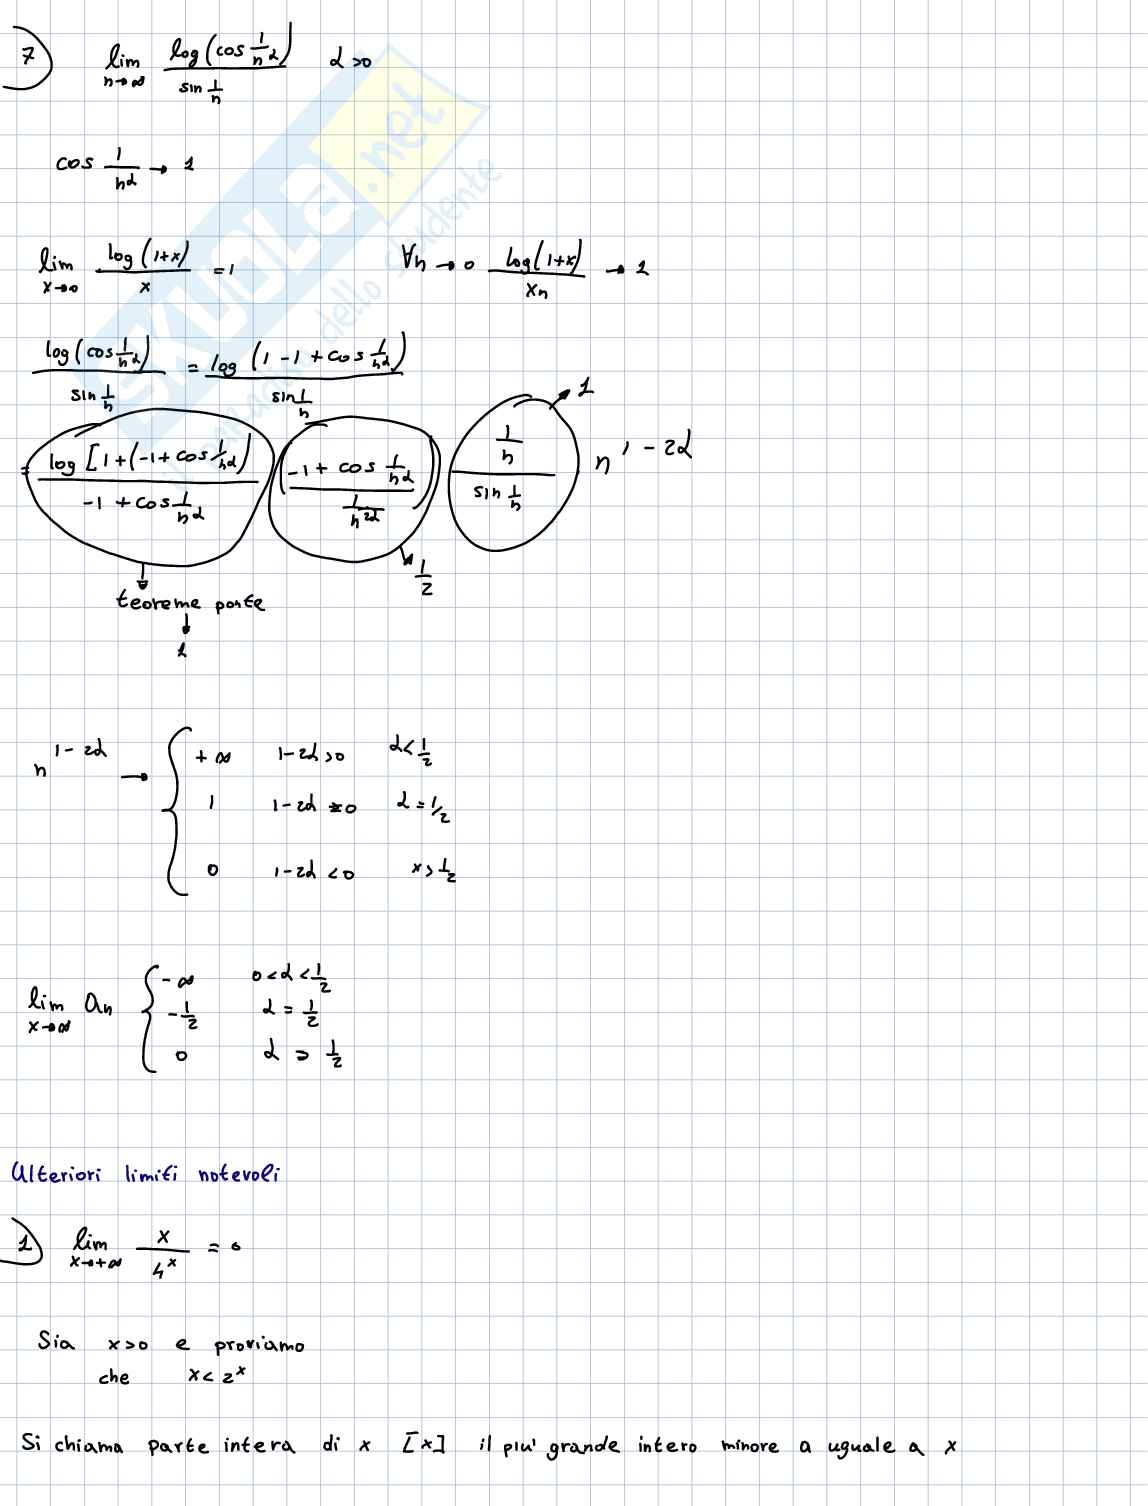 7) lim n→∞ log(cos 1/n^α) / sin 1/n α>0
cos 1/n^α → 1
lim x→0 log(1+x)/x = 1 ∀n→0 log(1+x)/xn → 1
log(cos 1/n^α) / sin 1/n = log(1-1+cos 1/n^α) / sin 1/n
= log[1+(-1+cos 1/n^α) / -1+cos 1/n^α (-1+cos 1/n^α / 1/n^2α) 1/n / sin 1/n → 1 n^1-2α
→ 1/2
teoreme ponte
↓
1
n^1-2α → { +∞ 1-2α>0 α<1/2
1 1-2α=0 α=1/2
0 1-2α<0 x>1/2
lim x→∞ an { -∞ 0<α<1/2
-1/2 α=1/2
0 α > 1/2
Ulteriori limiti notevoli
1) lim x→+∞ x/4^x = 0
Sia x>0 e proviamo
che x<2^x
Si chiama parte intera di x [x] il piu' grande intero minore a uguale a x
SKUOLA.net
dello studente